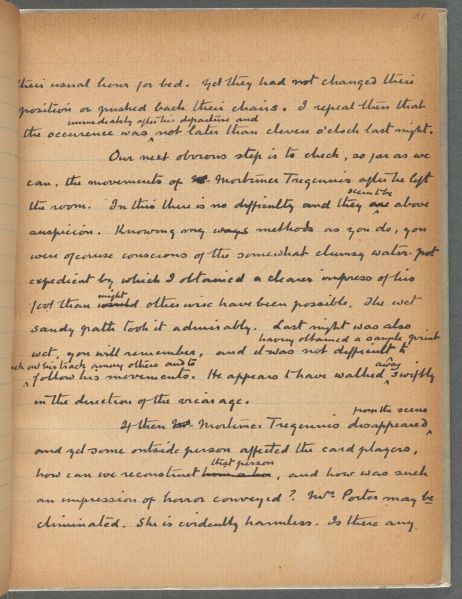 21
their usual hour for bed. Yet they had not changed their
position or pushed back their chairs. I repeat then that
immediately after his departure and
the occurrence was not later than eleven o'clock last night.
Our next obvious step is to check, so far as we
can, the movements of Mr. Mortimer Tregennis after he left
seem to be
the room. In this there is no difficulty and they are above
suspicion. Knowing my ways methods as you do, you
were of course conscious of the somewhat clumsy water-pot
expedient by which I obtained a clearer impress of his
might
foot than would otherwise have been possible. The wet
sandy path took it admirably. Last night was also
having obtained a sample print
wet, you will remember, and it was not difficult to
pick out his track among others and to away
follow his movements. He appears to have walked swiftly
in the direction of the vicarage.
from the scene
If then Mr. Mortimer Tregennis disappeared
and yet some outside person affected the card players,
that person
how can we reconstruct , and how was such
an impression of horror conveyed? Mrs. Porter may be
eliminated. She is evidently harmless. Is there any